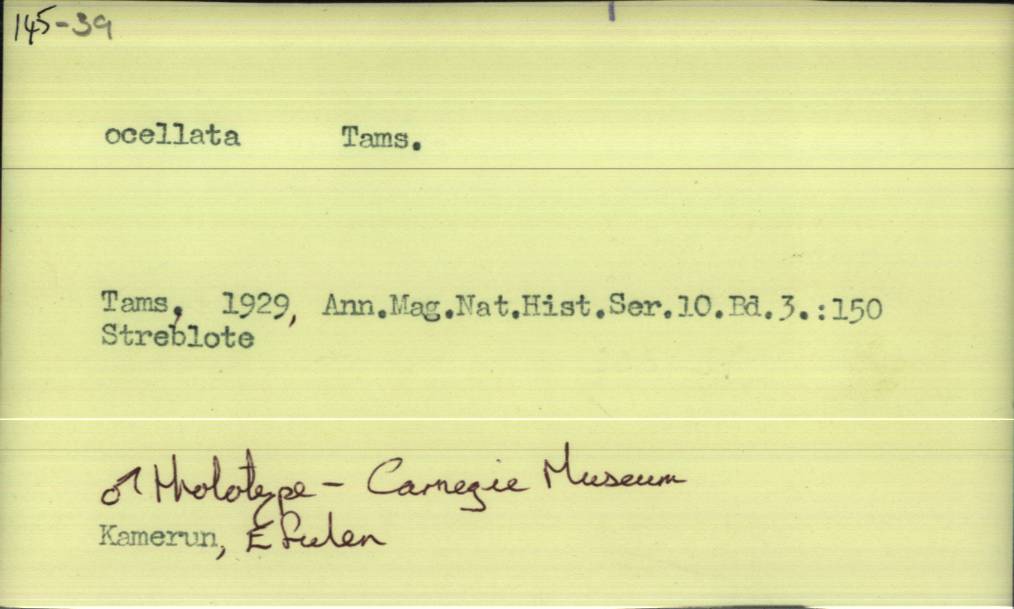 145-39
ocellata Tams.
Tams, 1929, Ann.Mag.Nat.Hist.Ser.10.Bd.3.:150
Streblote
♂ Holotype - Carnegie Museum
Kamerun, Efulen